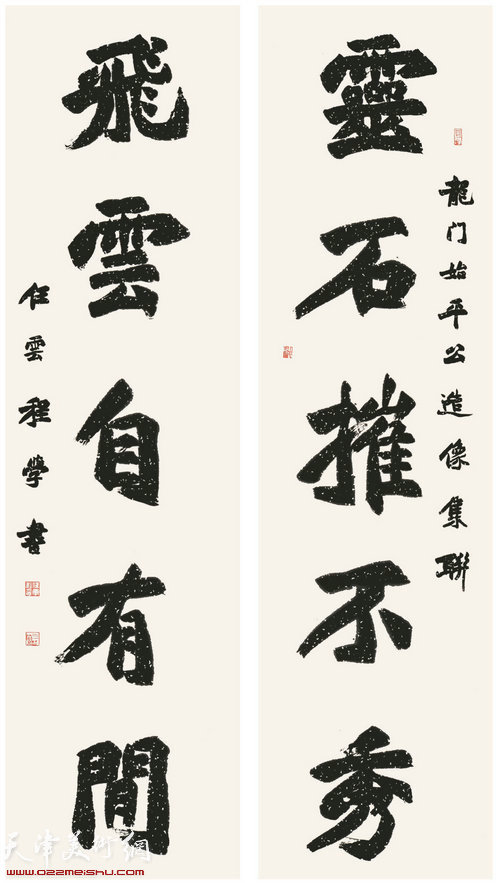 龍门始平公造像集聯
靈石摧不秀
飛雲自有間
任雲程学書
天津美術網
www.022meishu.com